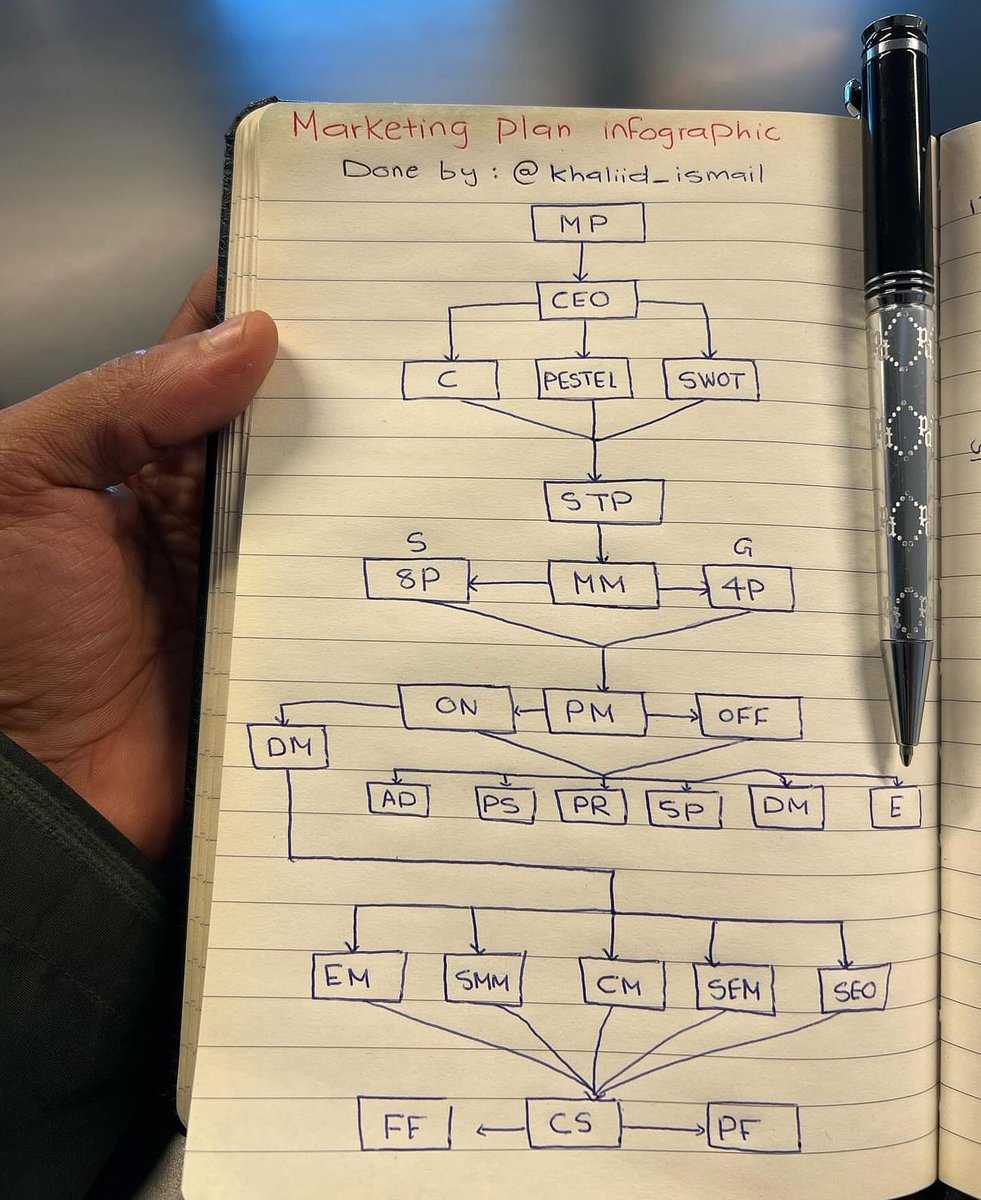 Marketing plan infographic
Done by: @khaliid_ismail
MP
CEO
C PESTEL SWOT
STP
S G
8P MM 4P
ON PM OFF
DM
AD PS PR SP DM E
EM SMM CM SEM SEO
FF CS PF